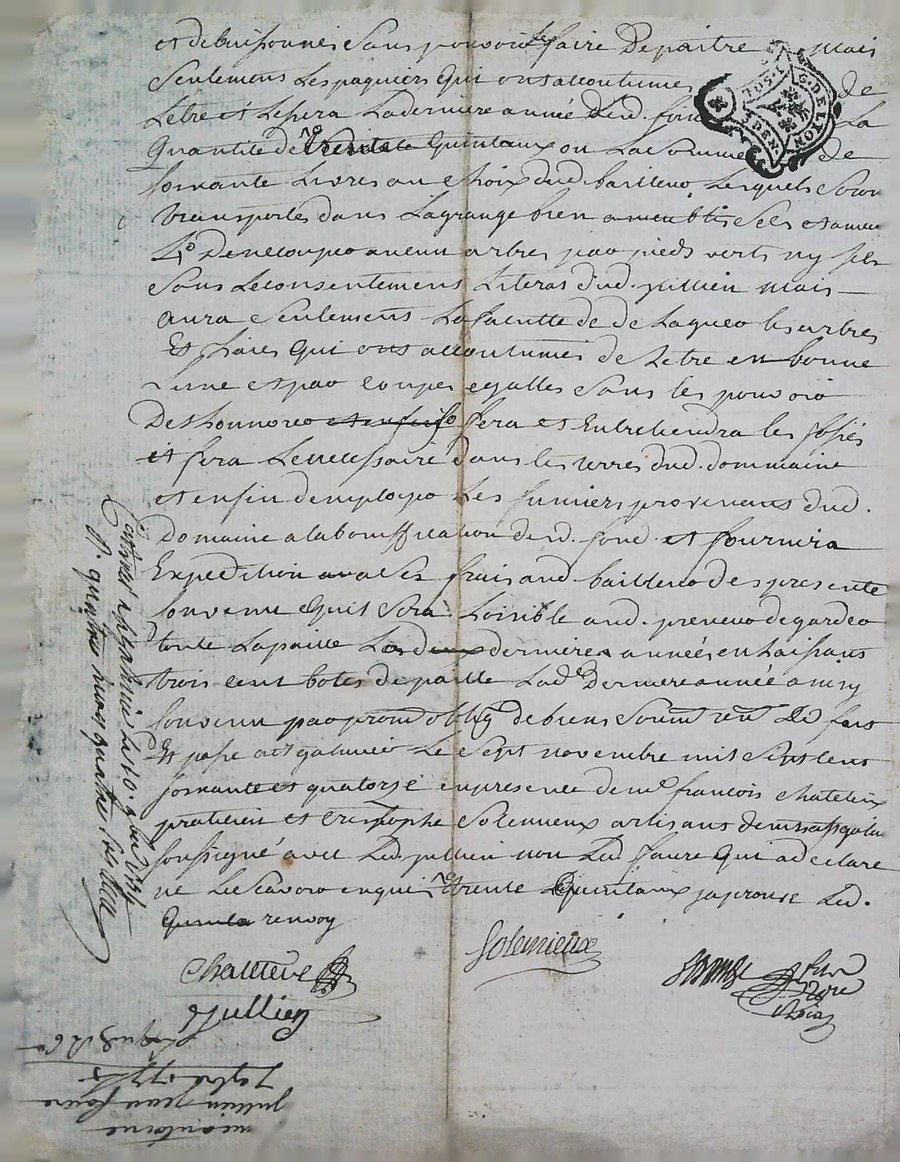 et debuissonner Sans pouvoir les faire Depaitre mais
Seulement Les paquiers Qui ont accoutume de
Letre et Lepera La derniere année Dud. foin La
Quantité de trente Quintaux ou La Somme de
soixante Livres au Choix dud bailleur Lesquels Seron
transportes dans La grange bien
4° De ne couper aucun arbres par pieds verts ny secs
Sans Le consentement Literas dud. jullien mais
aura Seulement La facultte de de Laguer les arbres
Et haies Qui ont accoutumes de Letre en bonne
Lune et par coupes egalles Sans les pouvoir
Deshonnorer fera et Entretiendra les fossés
et fera Le necessaire dans les terres dud. dommaine
et enfin demployer Les fumiers provenants dud.
Domaine a la bouffication dud. fond et fournira
Expedition a Ses frais aud bailleur des presente
Convenu Quil Sera Loisible aud. preneur de garder
toute La paille Les deux dernieres années en Laissant
trois cent botes de paille Lad. Derniere année ainsy
Convenu par prom. oblig. de biens Soum. ren. Dt fait
Et passe a St galmier Le Sept novembre mil Sept cent
soixante et quatorse en presence de me francois Chateleux
praticien et Cristophe Solemieux artisans dem. a St galm.
soussigné avec Led. jullien non Led faure Qui a declare
ne Le Savoir enquis trente Quintaux japrouve Led.
renvoy
Chatteleux
Solemieux
Jullien
G. DE LYON
1. SOL
DEN
Controllé a St galmier Le 10. 9bre 1774
R. quatre sols
jullien jean faure